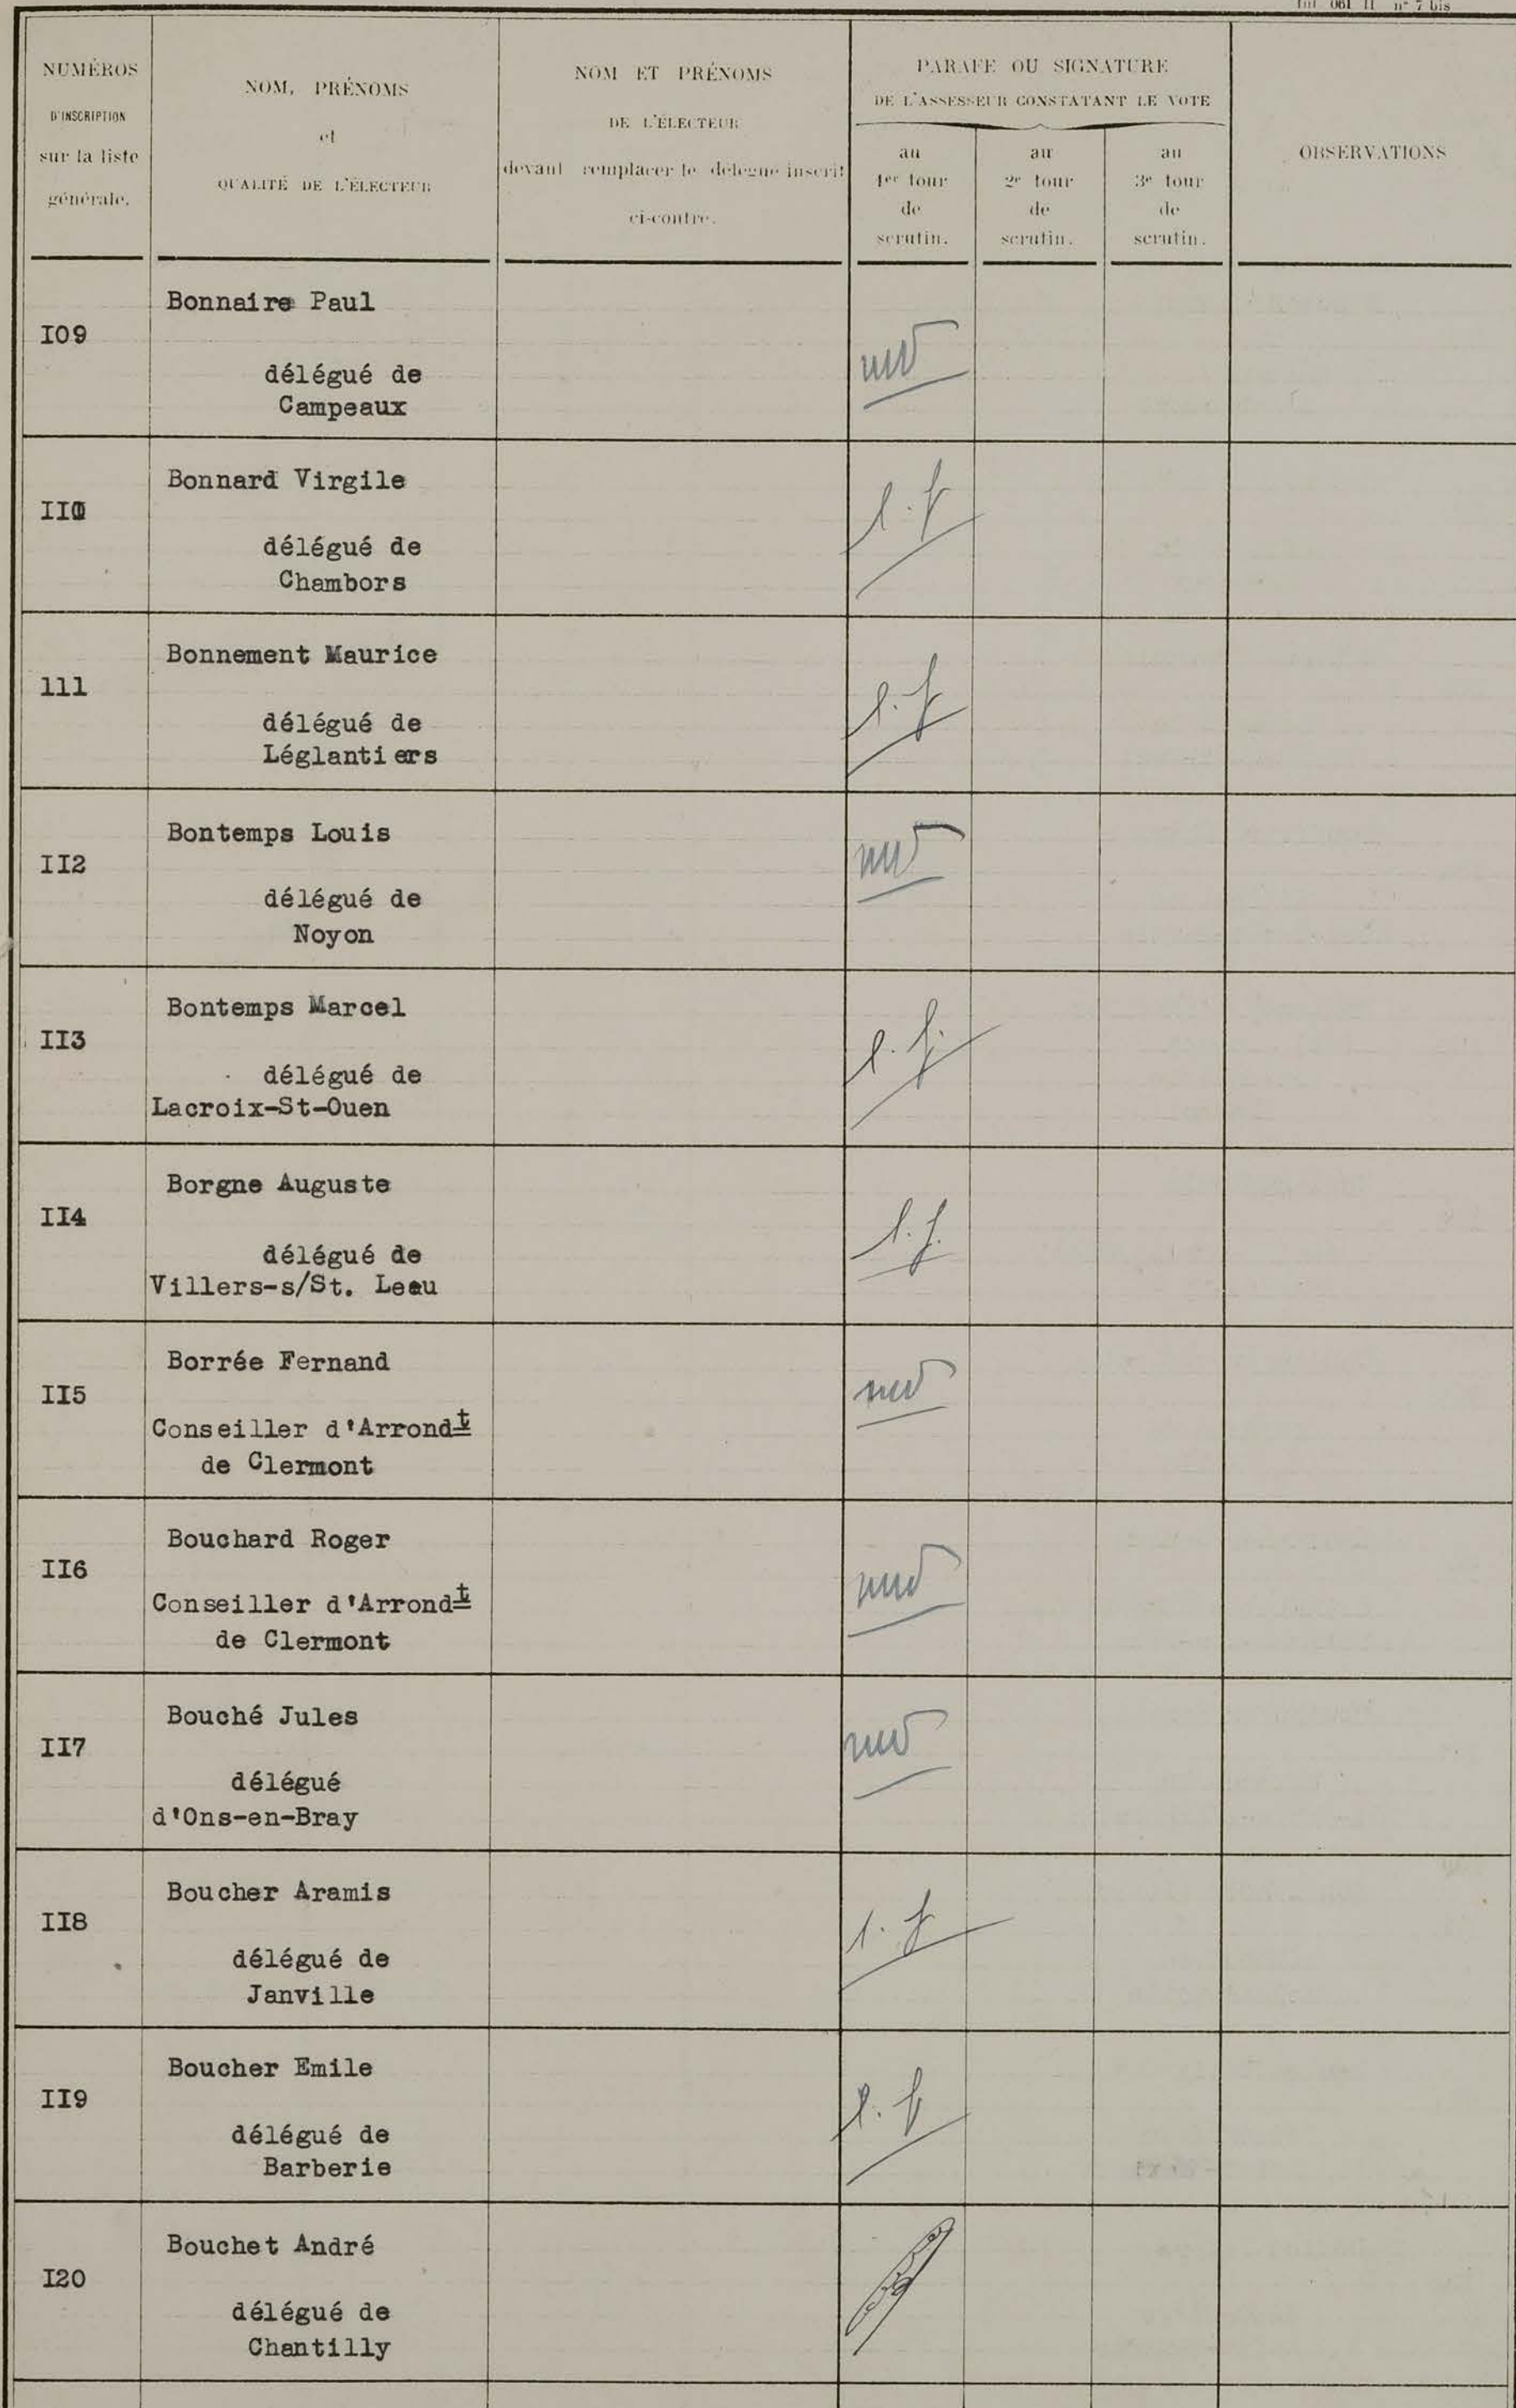 n° 7 bis
NUMÉROS
D'INSCRIPTION
sur la liste
générale.
NOM, PRÉNOMS
et
QUALITÉ DE L'ÉLECTEUR
NOM ET PRÉNOMS
DE L'ÉLECTEUR
devant remplacer le délégué inscrit
ci-contre.
PARAFE OU SIGNATURE
DE L'ASSESSEUR CONSTATANT LE VOTE
au
1er tour
de
scrutin.
au
2e tour
de
scrutin.
au
3e tour
de
scrutin.
OBSERVATIONS
I09
Bonnaire Paul
délégué de
Campeaux
II0
Bonnard Virgile
délégué de
Chambors
l.f
111
Bonnement Maurice
délégué de
Léglantiers
l.f
II2
Bontemps Louis
délégué de
Noyon
II3
Bontemps Marcel
délégué de
Lacroix-St-Ouen
l.f
II4
Borgne Auguste
délégué de
Villers-s/St. Leau
l.f.
II5
Borrée Fernand
Conseiller d'Arrondt
de Clermont
II6
Bouchard Roger
Conseiller d'Arrondt
de Clermont
II7
Bouché Jules
délégué
d'Ons-en-Bray
II8
Boucher Aramis
délégué de
Janville
l.f
II9
Boucher Emile
délégué de
Barberie
l.f
I20
Bouchet André
délégué de
Chantilly